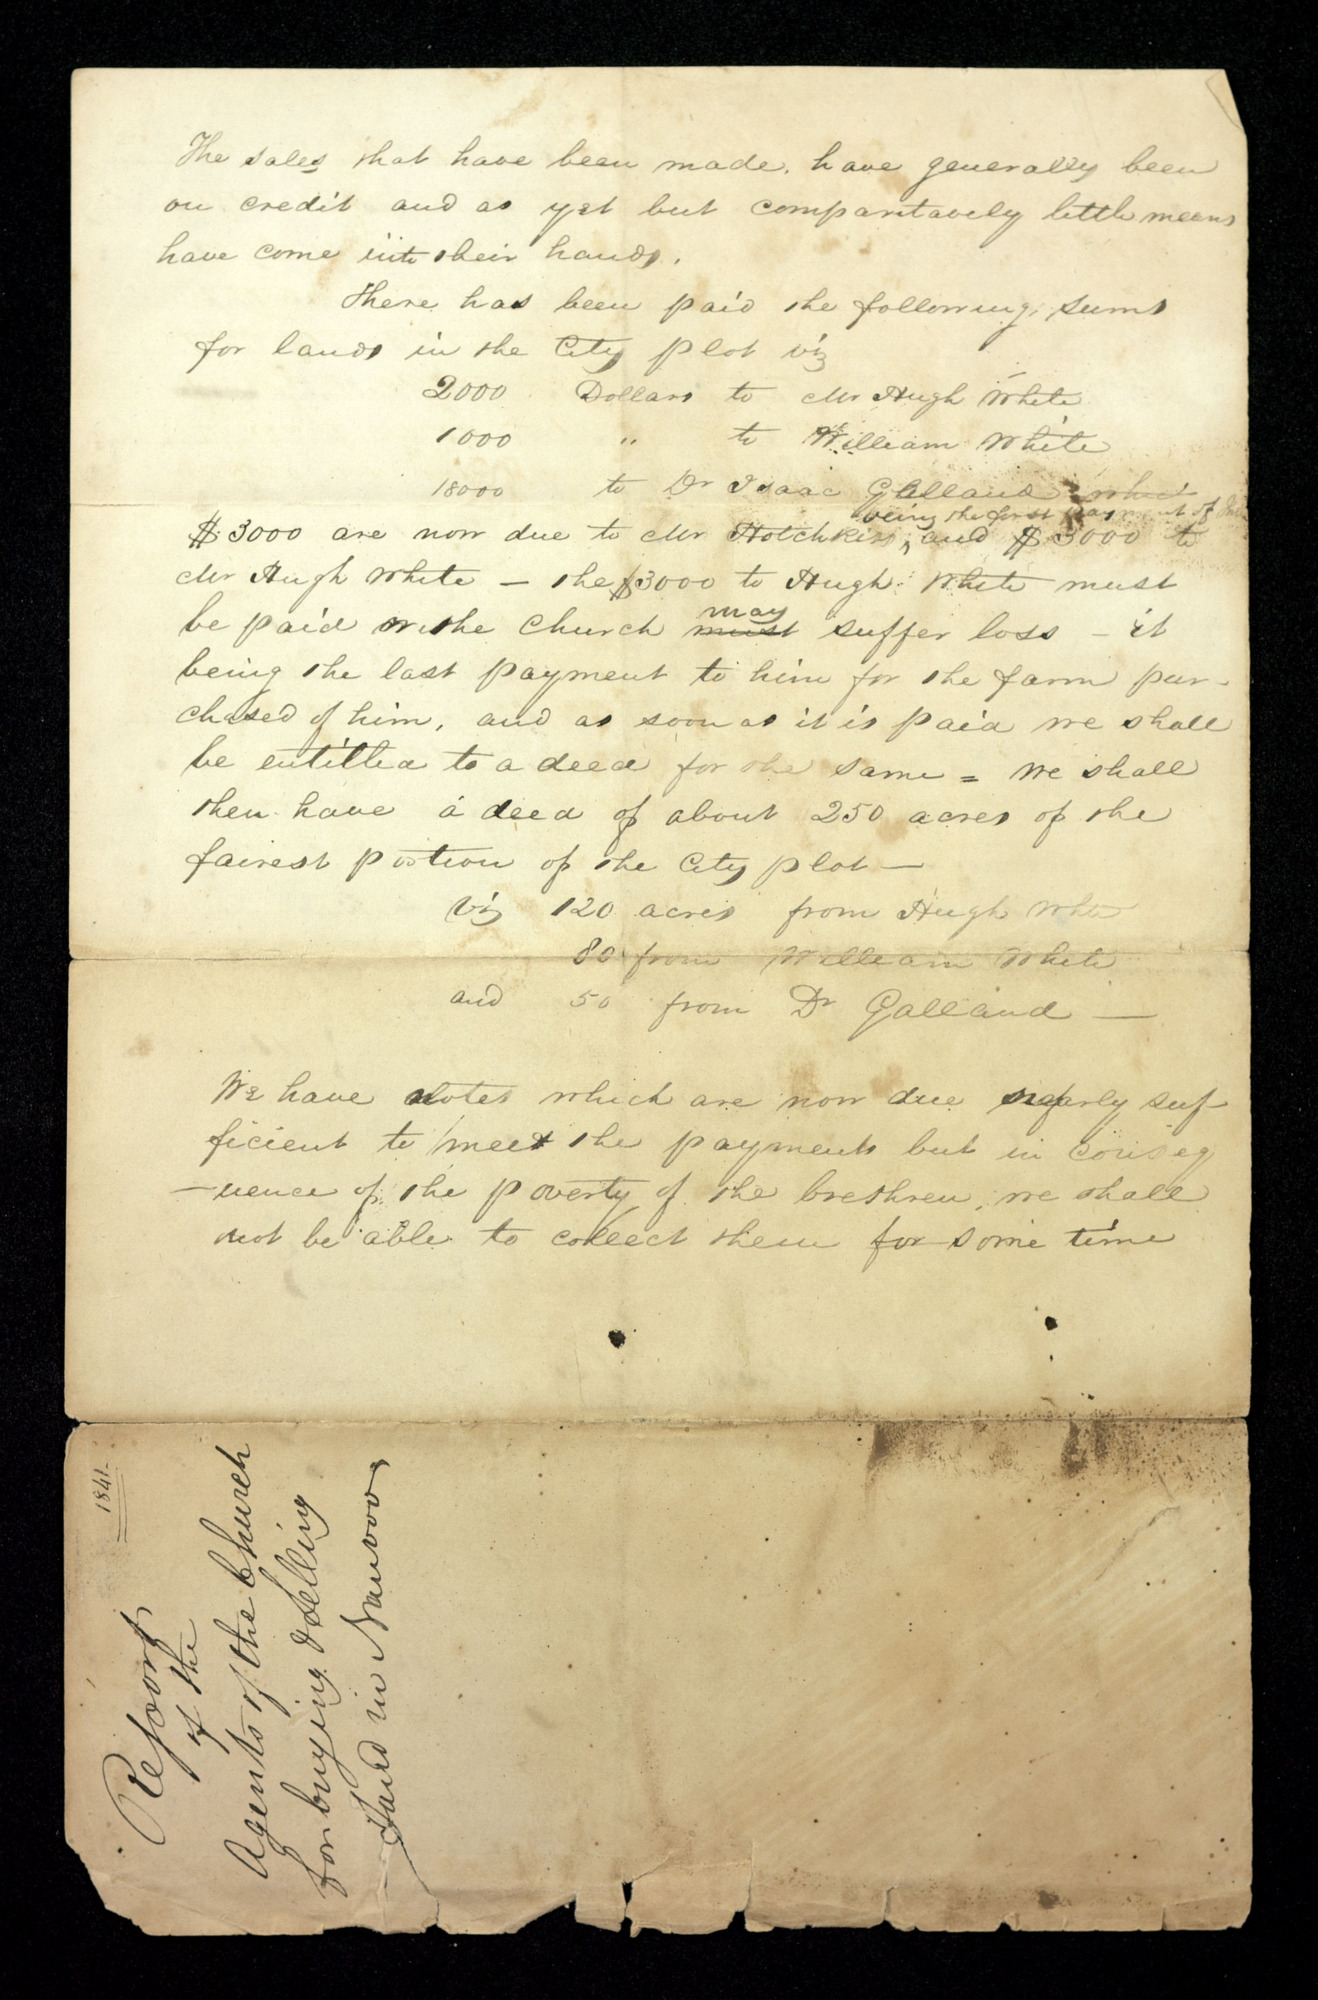 The sales that have been made, have generally been
on credit and as yet but comparitavely little means
have come into their hands.
There has been paid the following sums
for lands in the City plot viz
2000 Dollars to Mr Hugh White
1000 " to William White
18000 to Dr Isaac Galland
being the first payment of
$3000 are now due to Mr Hotchkiss, and $3000 to
Mr Hugh White – the $3000 to Hugh White must
may
be paid or the Church must suffer loss – it
being the last payment to him for the farm pur-
chased of him, and as soon as it is paid we shall
be entitled to a deed for the same = We shall
then have a deed of about 250 acres of the
fairest portion of the City plot —
viz 120 acres from Hugh White
80 from William White
and 50 from Dr Galland —
We have notes which are now due nearly suf-
ficient to meet the payments but in conseq
-uence of the poverty of the brethren, we shall
not be able to collect them for some time
1841
Report
of the
Agents of the Church
for buying & selling
Land in Nauvoo